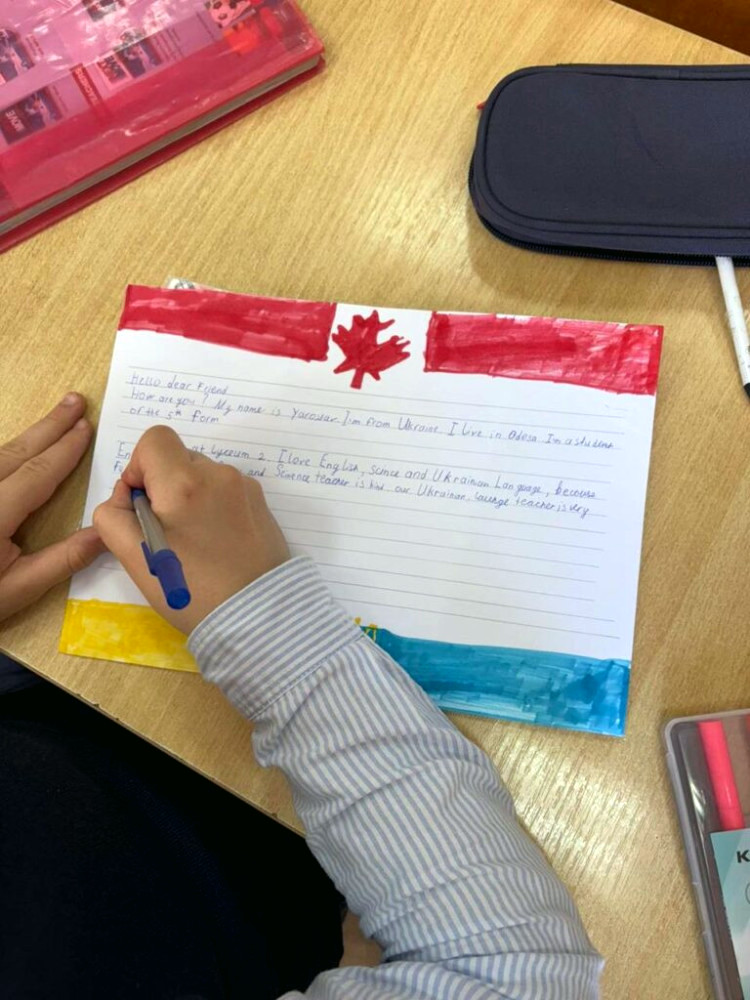 MOVE
Hello dear Friend
How are you? My name is Yaroslav. I'm from Ukraine I live in Odesa Im a student
of the 5th form
at Lyceum 2. I love English, science and Ukrainian Language, because
and Science teacher is kind our Ukrainian teacher is very
K